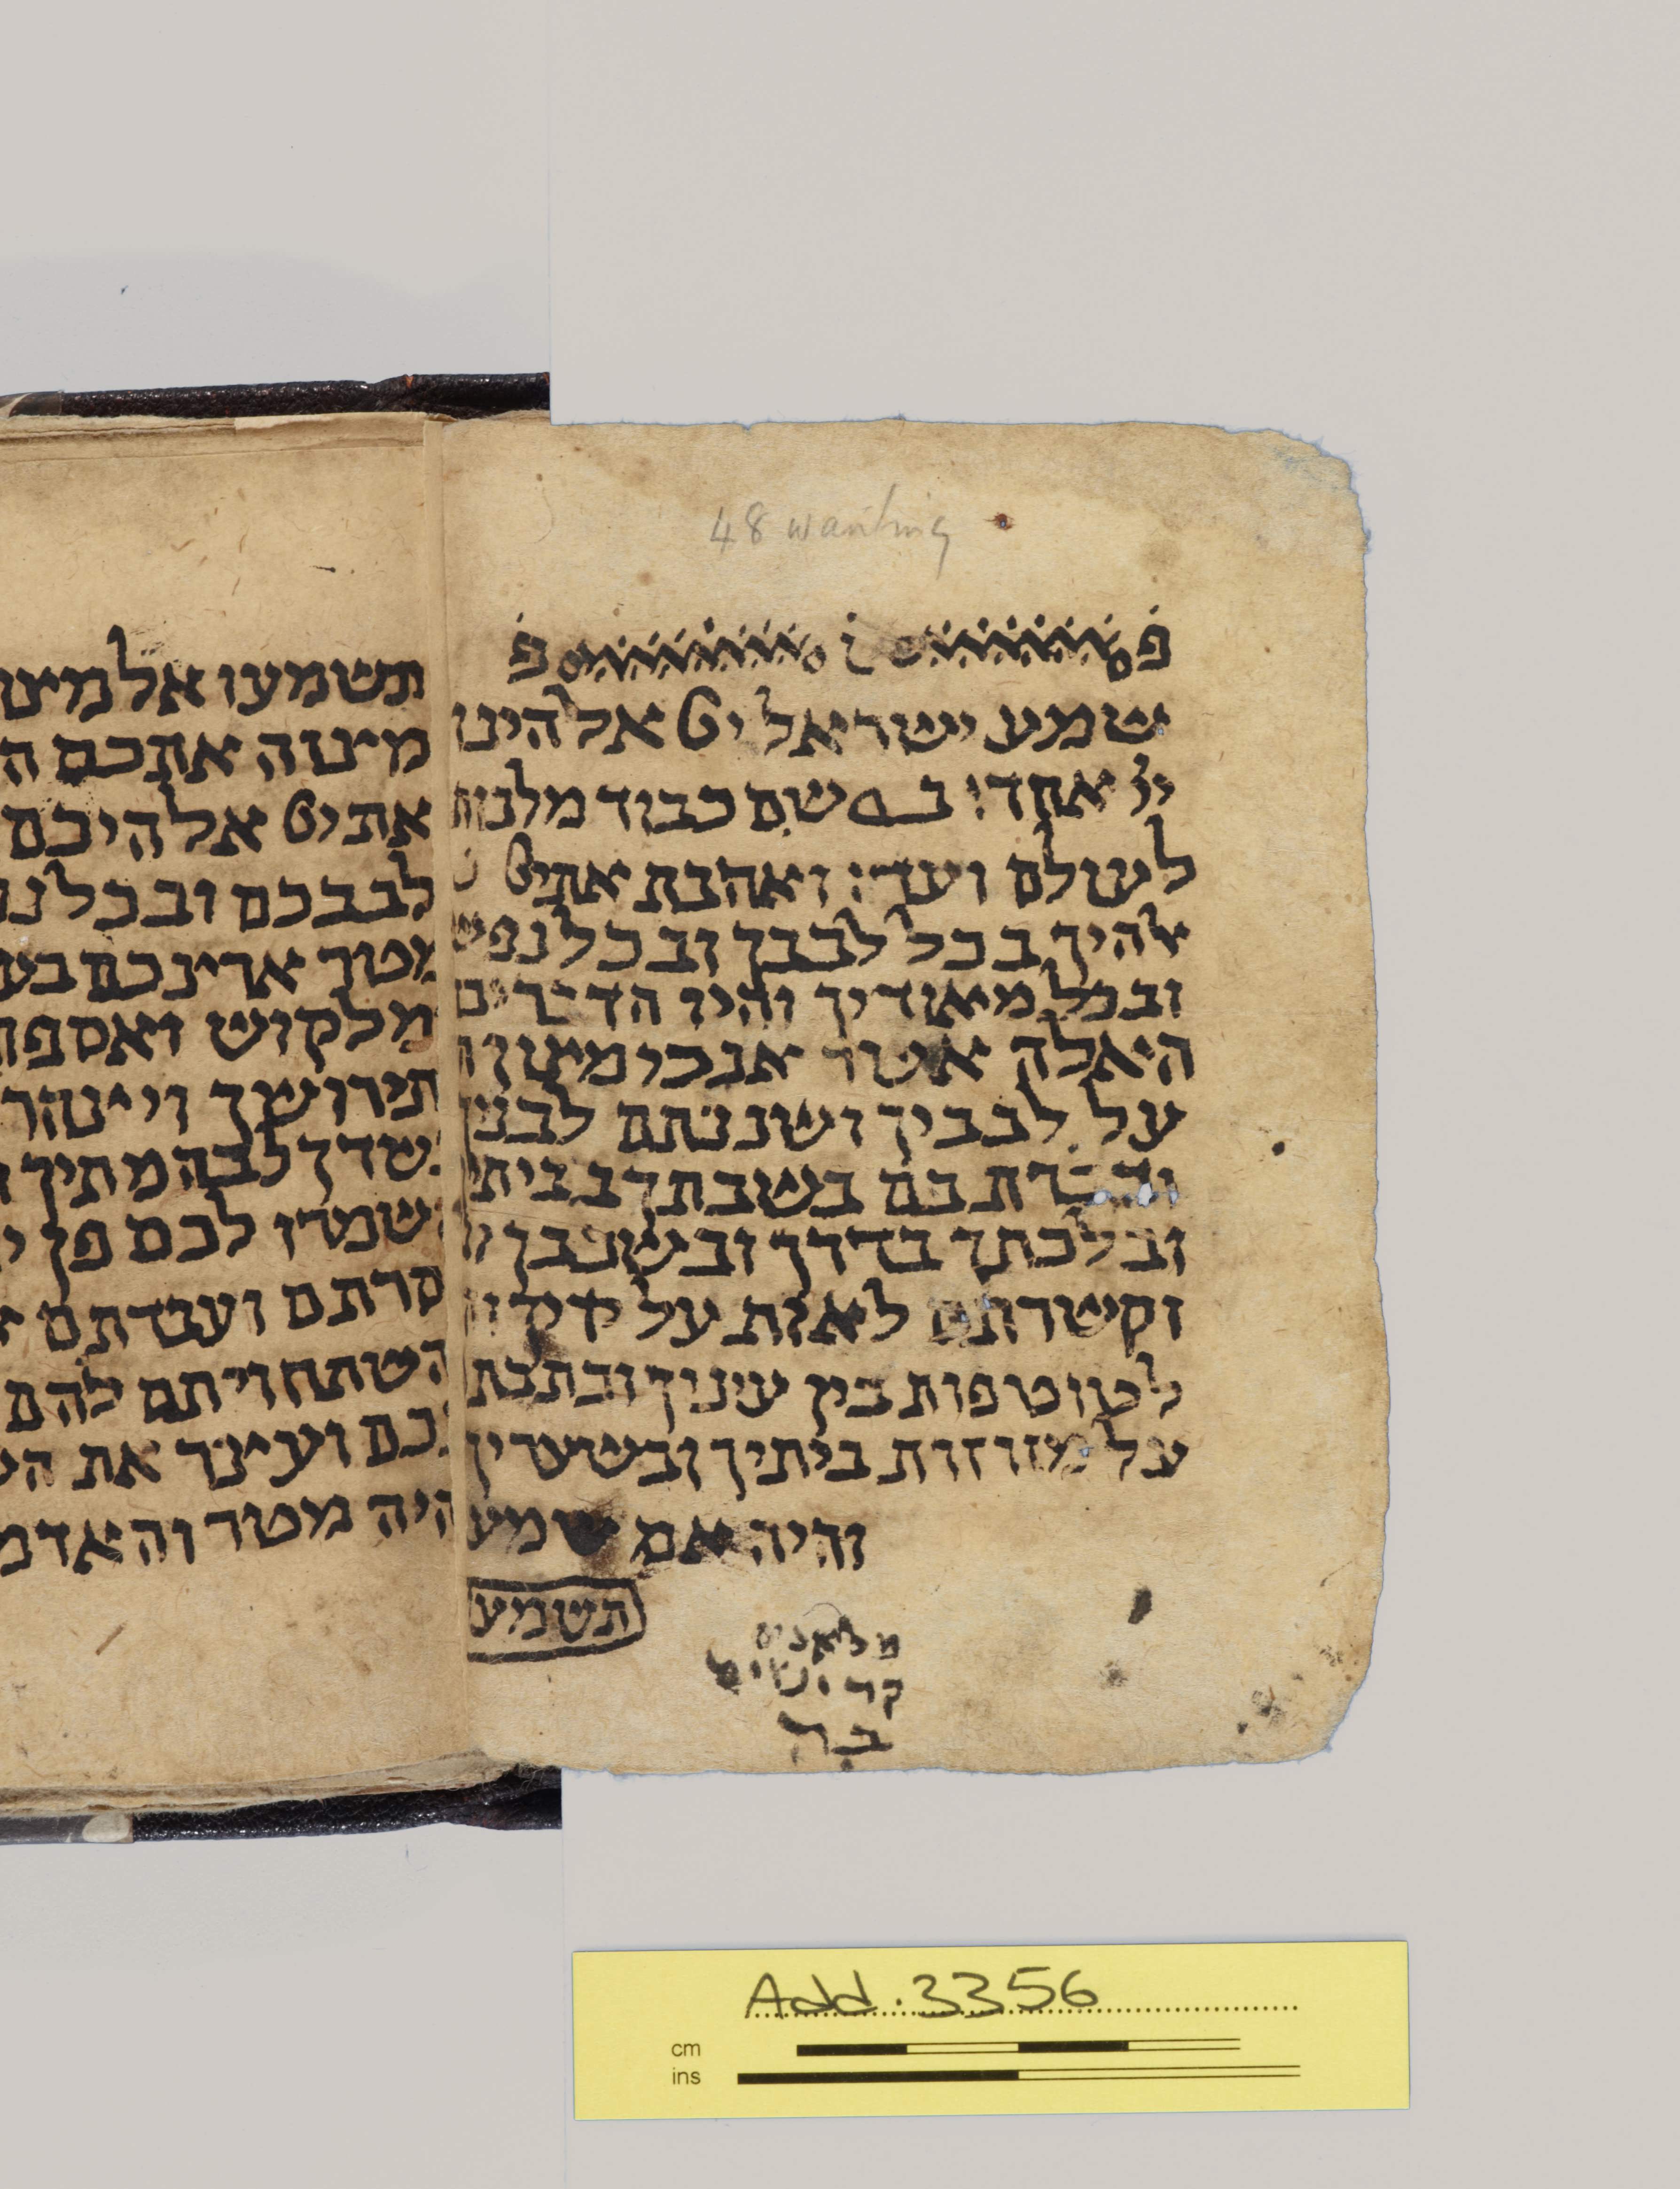 48 wanting
פ פ
שמע ישראל יי אלהינו
יי אחד: ב שם כבוד מלכות
לעולם ועד: ואהבת את יי
אלהיך בכל לבבך ובכל נפש
ובכל מאודיך והיו הדברים
האלה אשר אנכי מצווה
על לבביך ושננתם לבניך
ודברת בם בשבתך בביתי
ובלכתך בדרך ובשכבך
וקשרתם לאות על ידיך
לטוטפות בין עיניך וכתבת
על מזוזות ביתיך ובשעריך
והיה אם שמע
תשמע
תשמעו אל מצו
מצוה אתכם ה
את יי אלהיכם
לבבכם ובכל נפ
מטר ארצכם בע
מלקוש ואספת
תירושך ויצהר
בשדך לבהמתיך
השמרו לכם פן י
סרתם ועבדתם
השתחויתם להם
בכם ועצר את הש
היה מטר והאדמ
Add. 3356
cm
ins